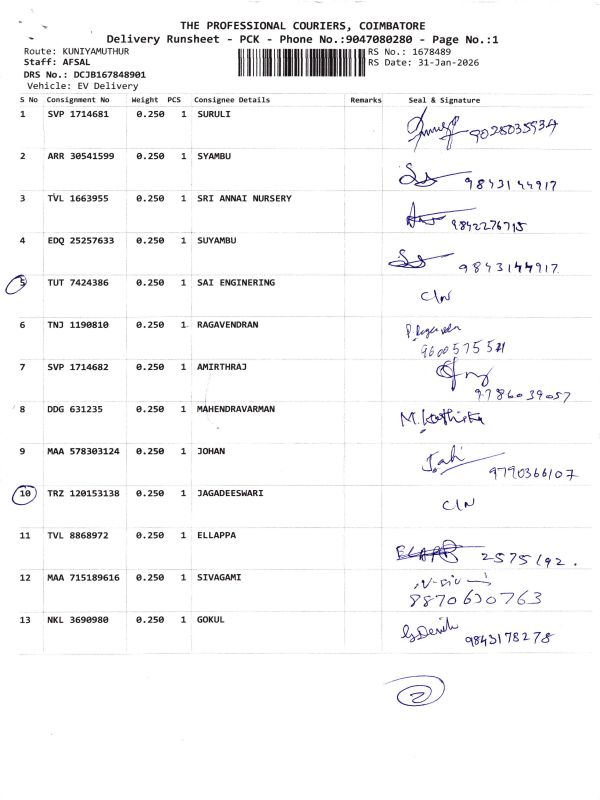 THE PROFESSIONAL COURIERS, COIMBATORE
Delivery Runsheet - PCK - Phone No.:9047080280 - Page No.:1
Route: KUNIYAMUTHUR RS No.: 1678489
Staff: AFSAL RS Date: 31-Jan-2026
DRS No.: DCJB167848901
Vehicle: EV Delivery
S No Consignment No Weight PCS Consignee Details Remarks Seal & Signature
1 SVP 1714681 0.250 1 SURULI
2 ARR 30541599 0.250 1 SYAMBU 9843144917
3 TVL 1663955 0.250 1 SRI ANNAI NURSERY 9842276715
4 EDQ 25257633 0.250 1 SUYAMBU 9843144917
5 TUT 7424386 0.250 1 SAI ENGINERING C/N
6 TNJ 1190810 0.250 1 RAGAVENDRAN
7 SVP 1714682 0.250 1 AMIRTHRAJ 9786039057
8 DDG 631235 0.250 1 MAHENDRAVARMAN
9 MAA 578303124 0.250 1 JOHAN 9790366107
10 TRZ 120153138 0.250 1 JAGADEESWARI C/N
11 TVL 8868972 0.250 1 ELLAPPA 2575192.
12 MAA 715189616 0.250 1 SIVAGAMI 8870630763
13 NKL 3690980 0.250 1 GOKUL 9843178278
2